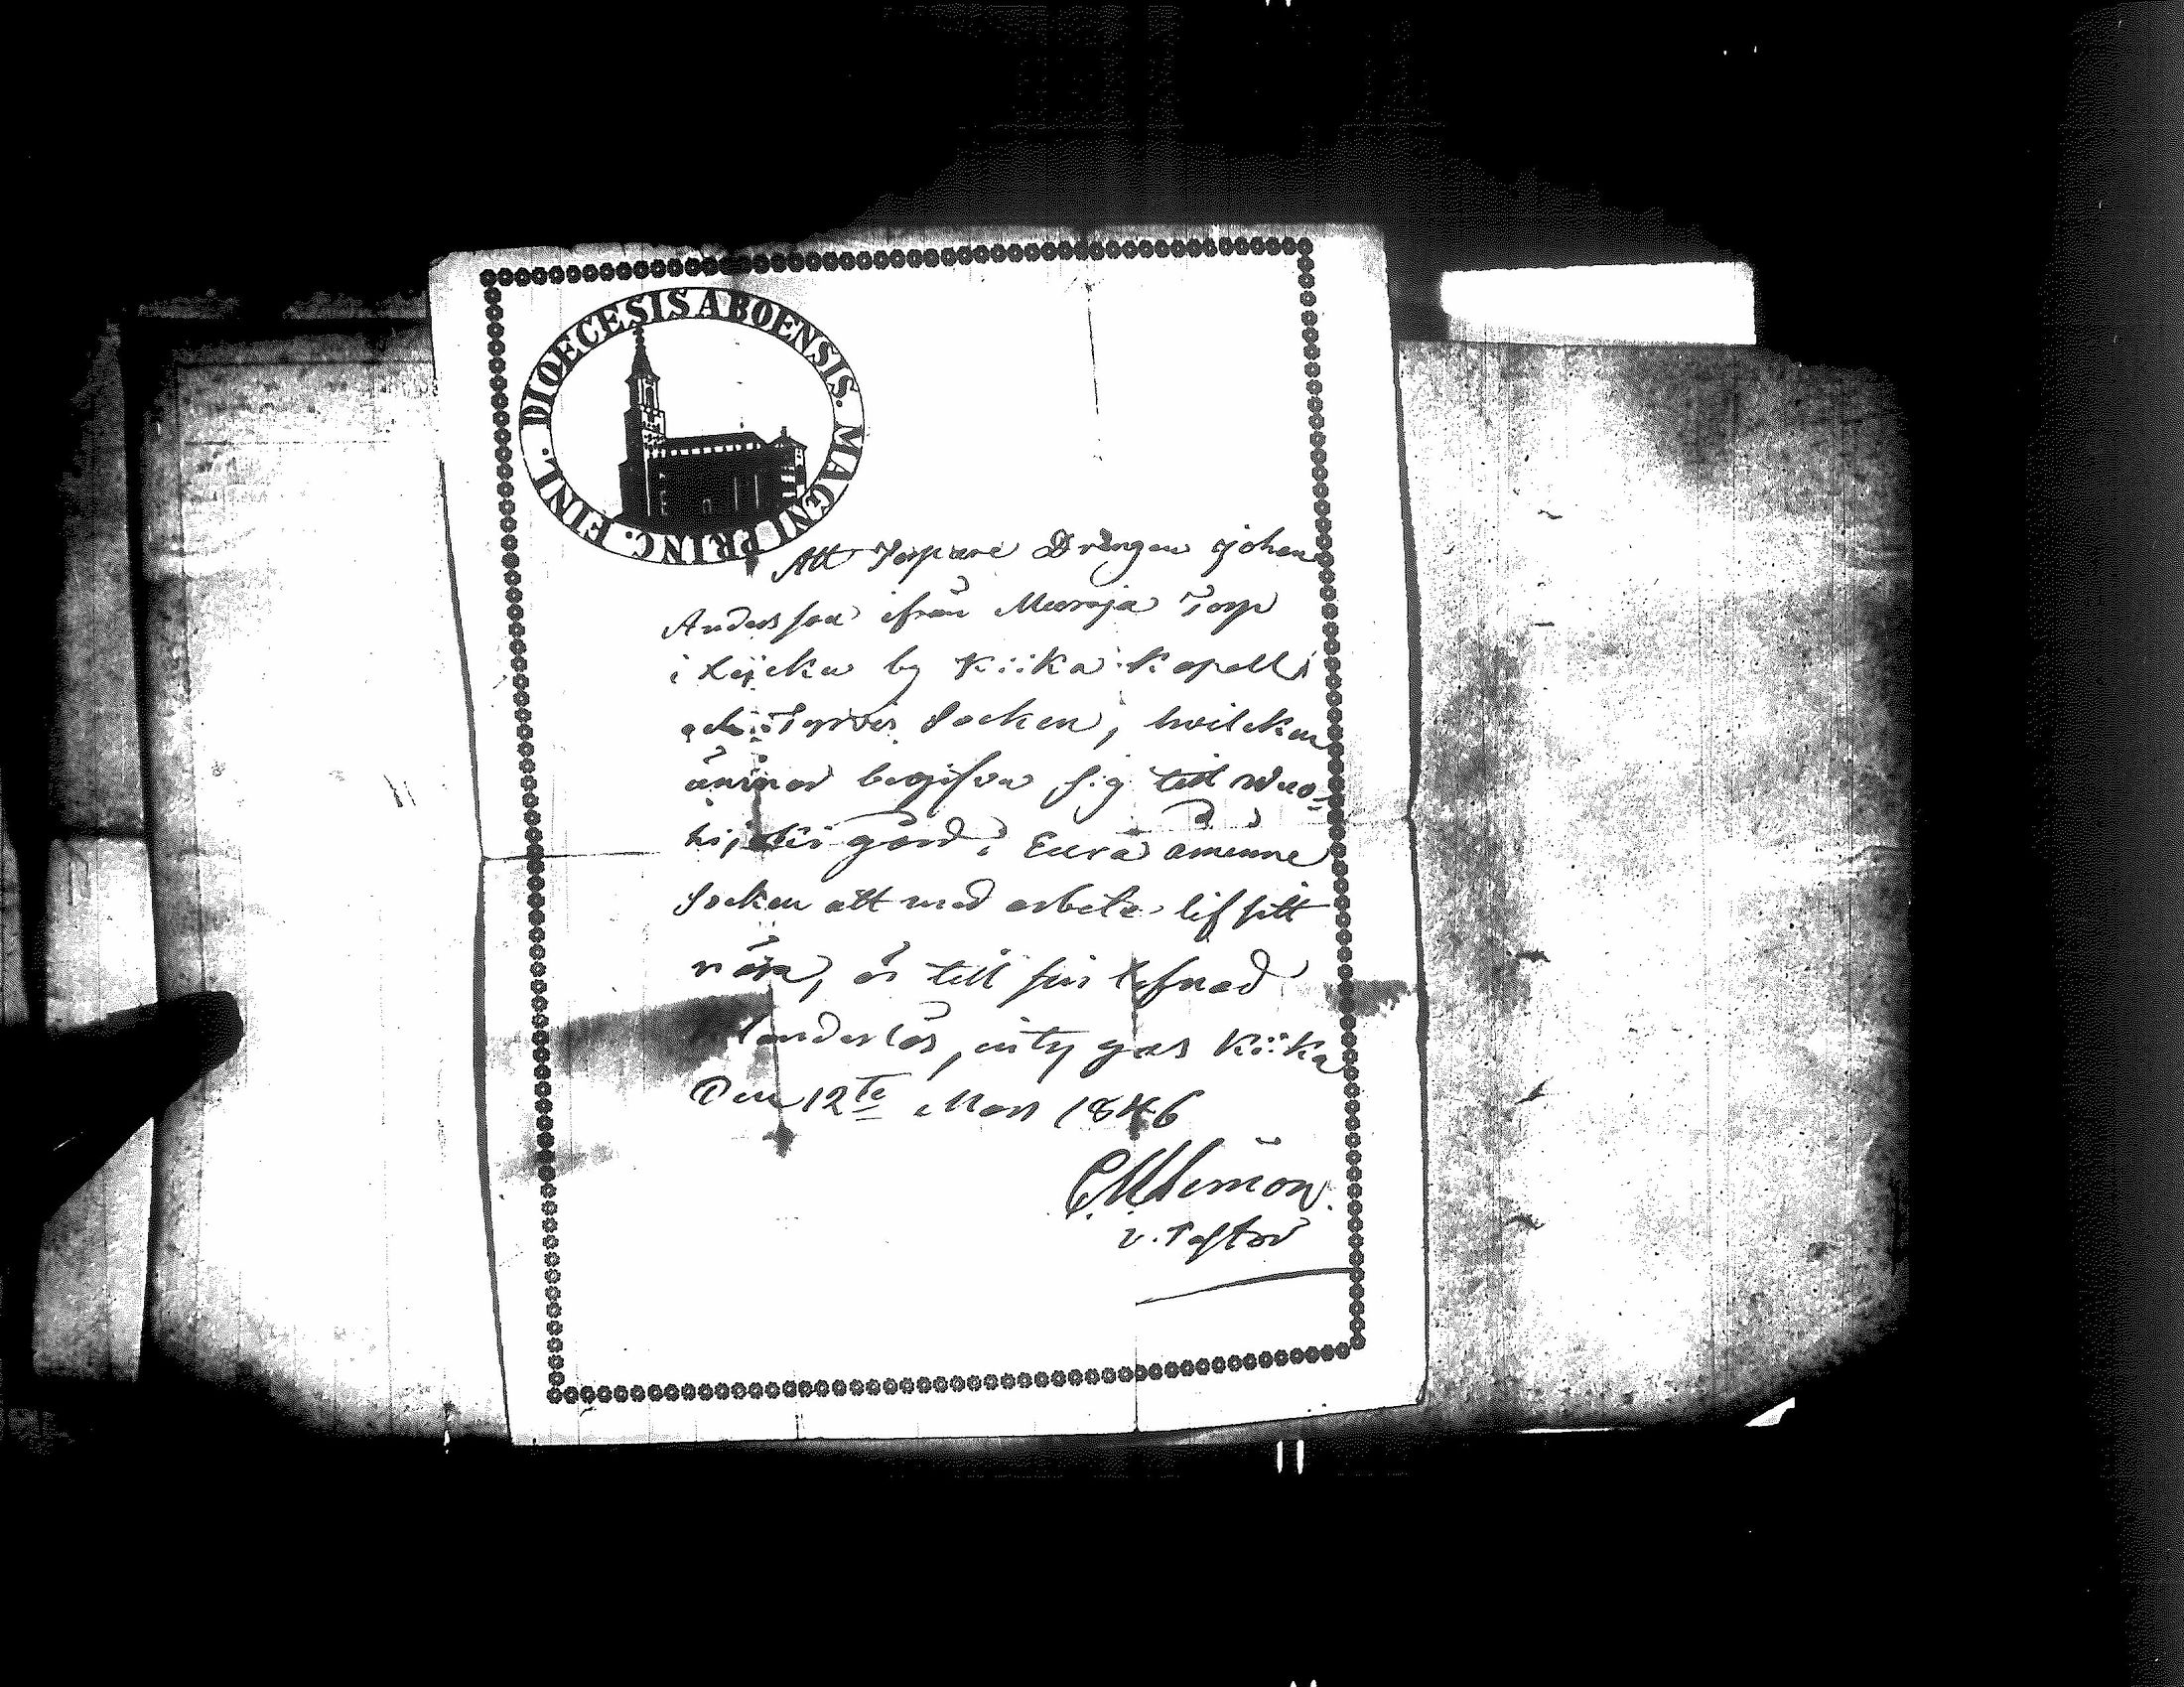 DIOECESIS ABOENSIS. MAGNI PRINC. FINL.
Att Torpare Drängen Johan
Andersson ifrån Muraja Torp
i by Kiika Kapell
och Tyrvis Socken, hvilcken
ämnar begifva sig till Wuo-
gård i Eura åminne
Socken att med arbete lif sitt
nära, är till sin lefnad
landerlös, intygas Kiika
Den 12te Mars 1846
v. Pastor